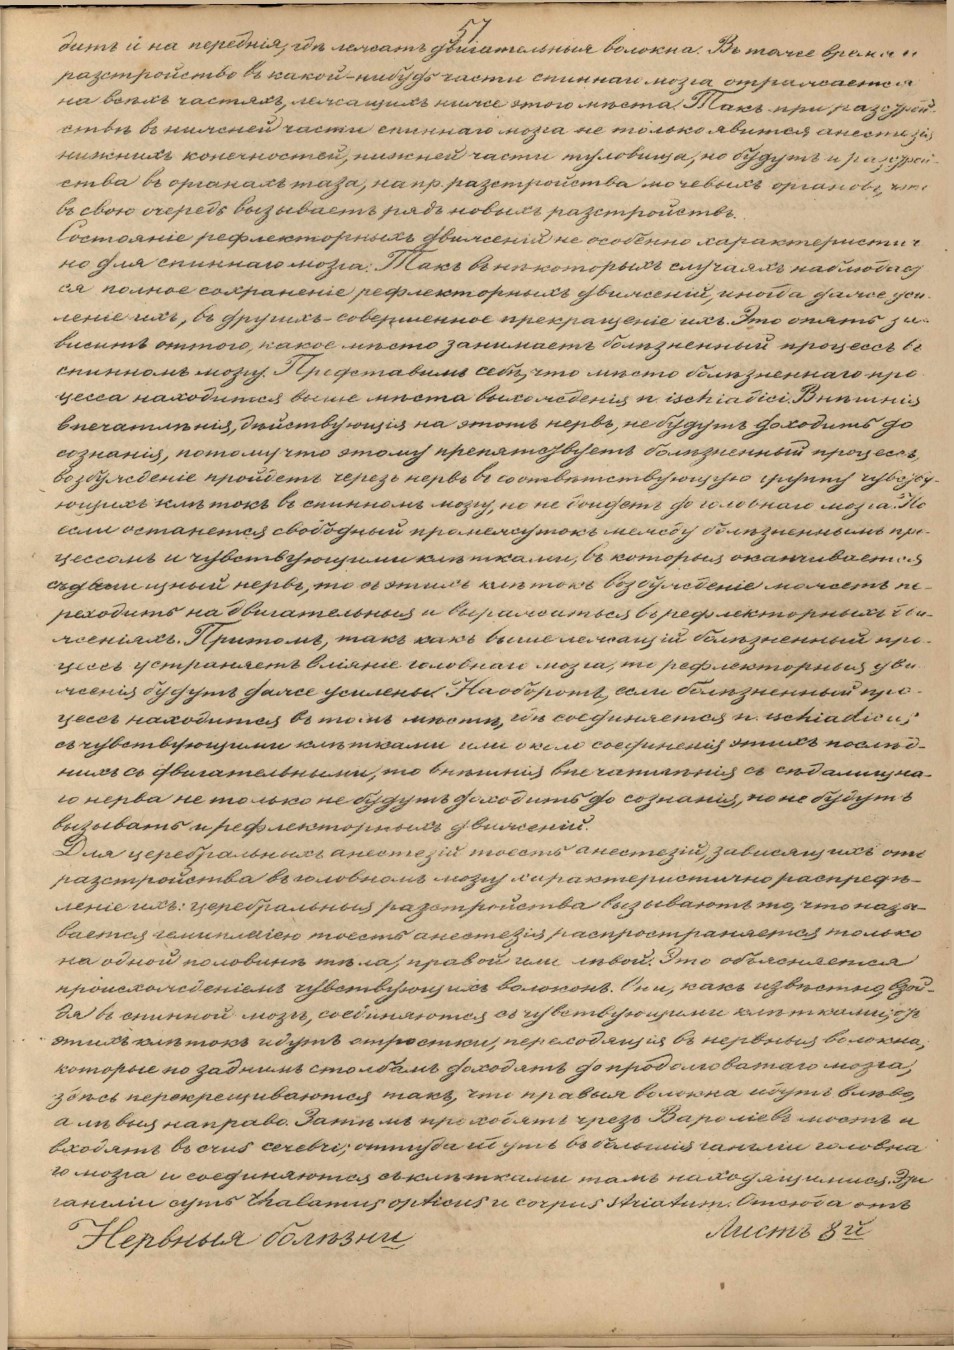 57
дитъ и на переднія, гдѣ лежатъ двигательныя волокна. Въ тоже время и
разстройство въ какой-нибудь части спиннаго мозга отражается
на всѣхъ частяхъ, лежащихъ ниже этого мѣста. Такъ при разстрой-
ствѣ въ нижней части спиннаго мозга не только явится анестезія
нижнихъ конечностей, нижней части туловища, но будутъ и разстрой-
ства въ органахъ таза, напр. разстройства мочевыхъ органовъ, что
въ свою очередь вызываетъ рядъ новыхъ разстройствъ.
Состояніе рефлекторныхъ движеній не особенно характеристич
но для спиннаго мозга. Такъ въ нѣкоторыхъ случаяхъ наблюдает
ся полное сохраненіе рефлекторныхъ движеній, иногда даже уси-
леніе ихъ, въ другихъ - совершенное прекращеніе ихъ. Это опять за-
виситъ оттого, какое мѣсто занимаетъ болѣзненный процессъ въ
спинномъ мозгу. Представимъ себѣ, что мѣсто болѣзненнаго про
цесса находится выше мѣста выхожденія n. ischiadici. Внѣшнія
впечатлѣнія, дѣйствующія на этотъ нервъ, не будутъ доходить до
сознанія, потому что этому препятствуетъ болѣзненный процессъ,
возбужденіе пройдетъ черезъ нервъ въ соотвѣтствующую группу чувству-
ющихъ клѣтокъ въ спинномъ мозгу, но не дойдетъ до головнаго мозга. Но
если останется свободный промежутокъ между болѣзненнымъ про-
цессомъ и чувствующими клѣтками, въ которыя оканчивается
сѣдалищный нервъ, то съ этихъ клѣтокъ возбужденіе можетъ пе-
реходить на двигательныя и выражаться въ рефлекторныхъ дви-
женіяхъ. Притомъ, такъ какъ вышележащій болѣзненный про-
цессъ устраняетъ вліяніе головнаго мозга, то рефлекторныя дви
женія будутъ даже усилены. Наоборотъ, если болѣзненный про-
цессъ находится въ томъ мѣстѣ, гдѣ соединяется n. ischiadicus
съ чувствующими клѣтками или около соединенія этихъ послѣд-
нихъ съ двигательными, то внѣшнія впечатлѣнія съ сѣдалищна-
го нерва не только не будутъ доходить до сознанія, но не будутъ
вызывать и рефлекторныхъ движеній.
Для церебральныхъ анестезій тоесть анестезій, зависящихъ отъ
разстройства въ головномъ мозгу характеристично распредѣ-
леніе ихъ: церебральныя разстройства вызываютъ то, что назы-
вается гемиплегіею тоесть анестезія распространяется только
на одной половинѣ тѣла, правой или лѣвой. Это объясняется
происхожденіемъ чувствующихъ волоконъ. Они, какъ извѣстно, взой-
дя въ спинной мозгъ, соединяются съ чувствующими клѣтками; отъ
этихъ клѣтокъ идутъ отростки, переходящія въ нервныя волокна,
которые по заднимъ столбамъ доходятъ до продолговатаго мозга,
здѣсь перекрещиваются такъ, что правыя волокна идутъ влѣво,
а лѣвыя направо. Затѣмъ проходятъ чрезъ Вароліевъ мостъ и
входятъ въ crus cerebri; оттуда идутъ въ большія ганглии головна
го мозга и соединяются съ клѣтками тамъ находящимися. Эти
ганглии суть thalamus opticus и corpus striatum. Отсюда отъ
Нервныя болѣзни
Листъ 8й